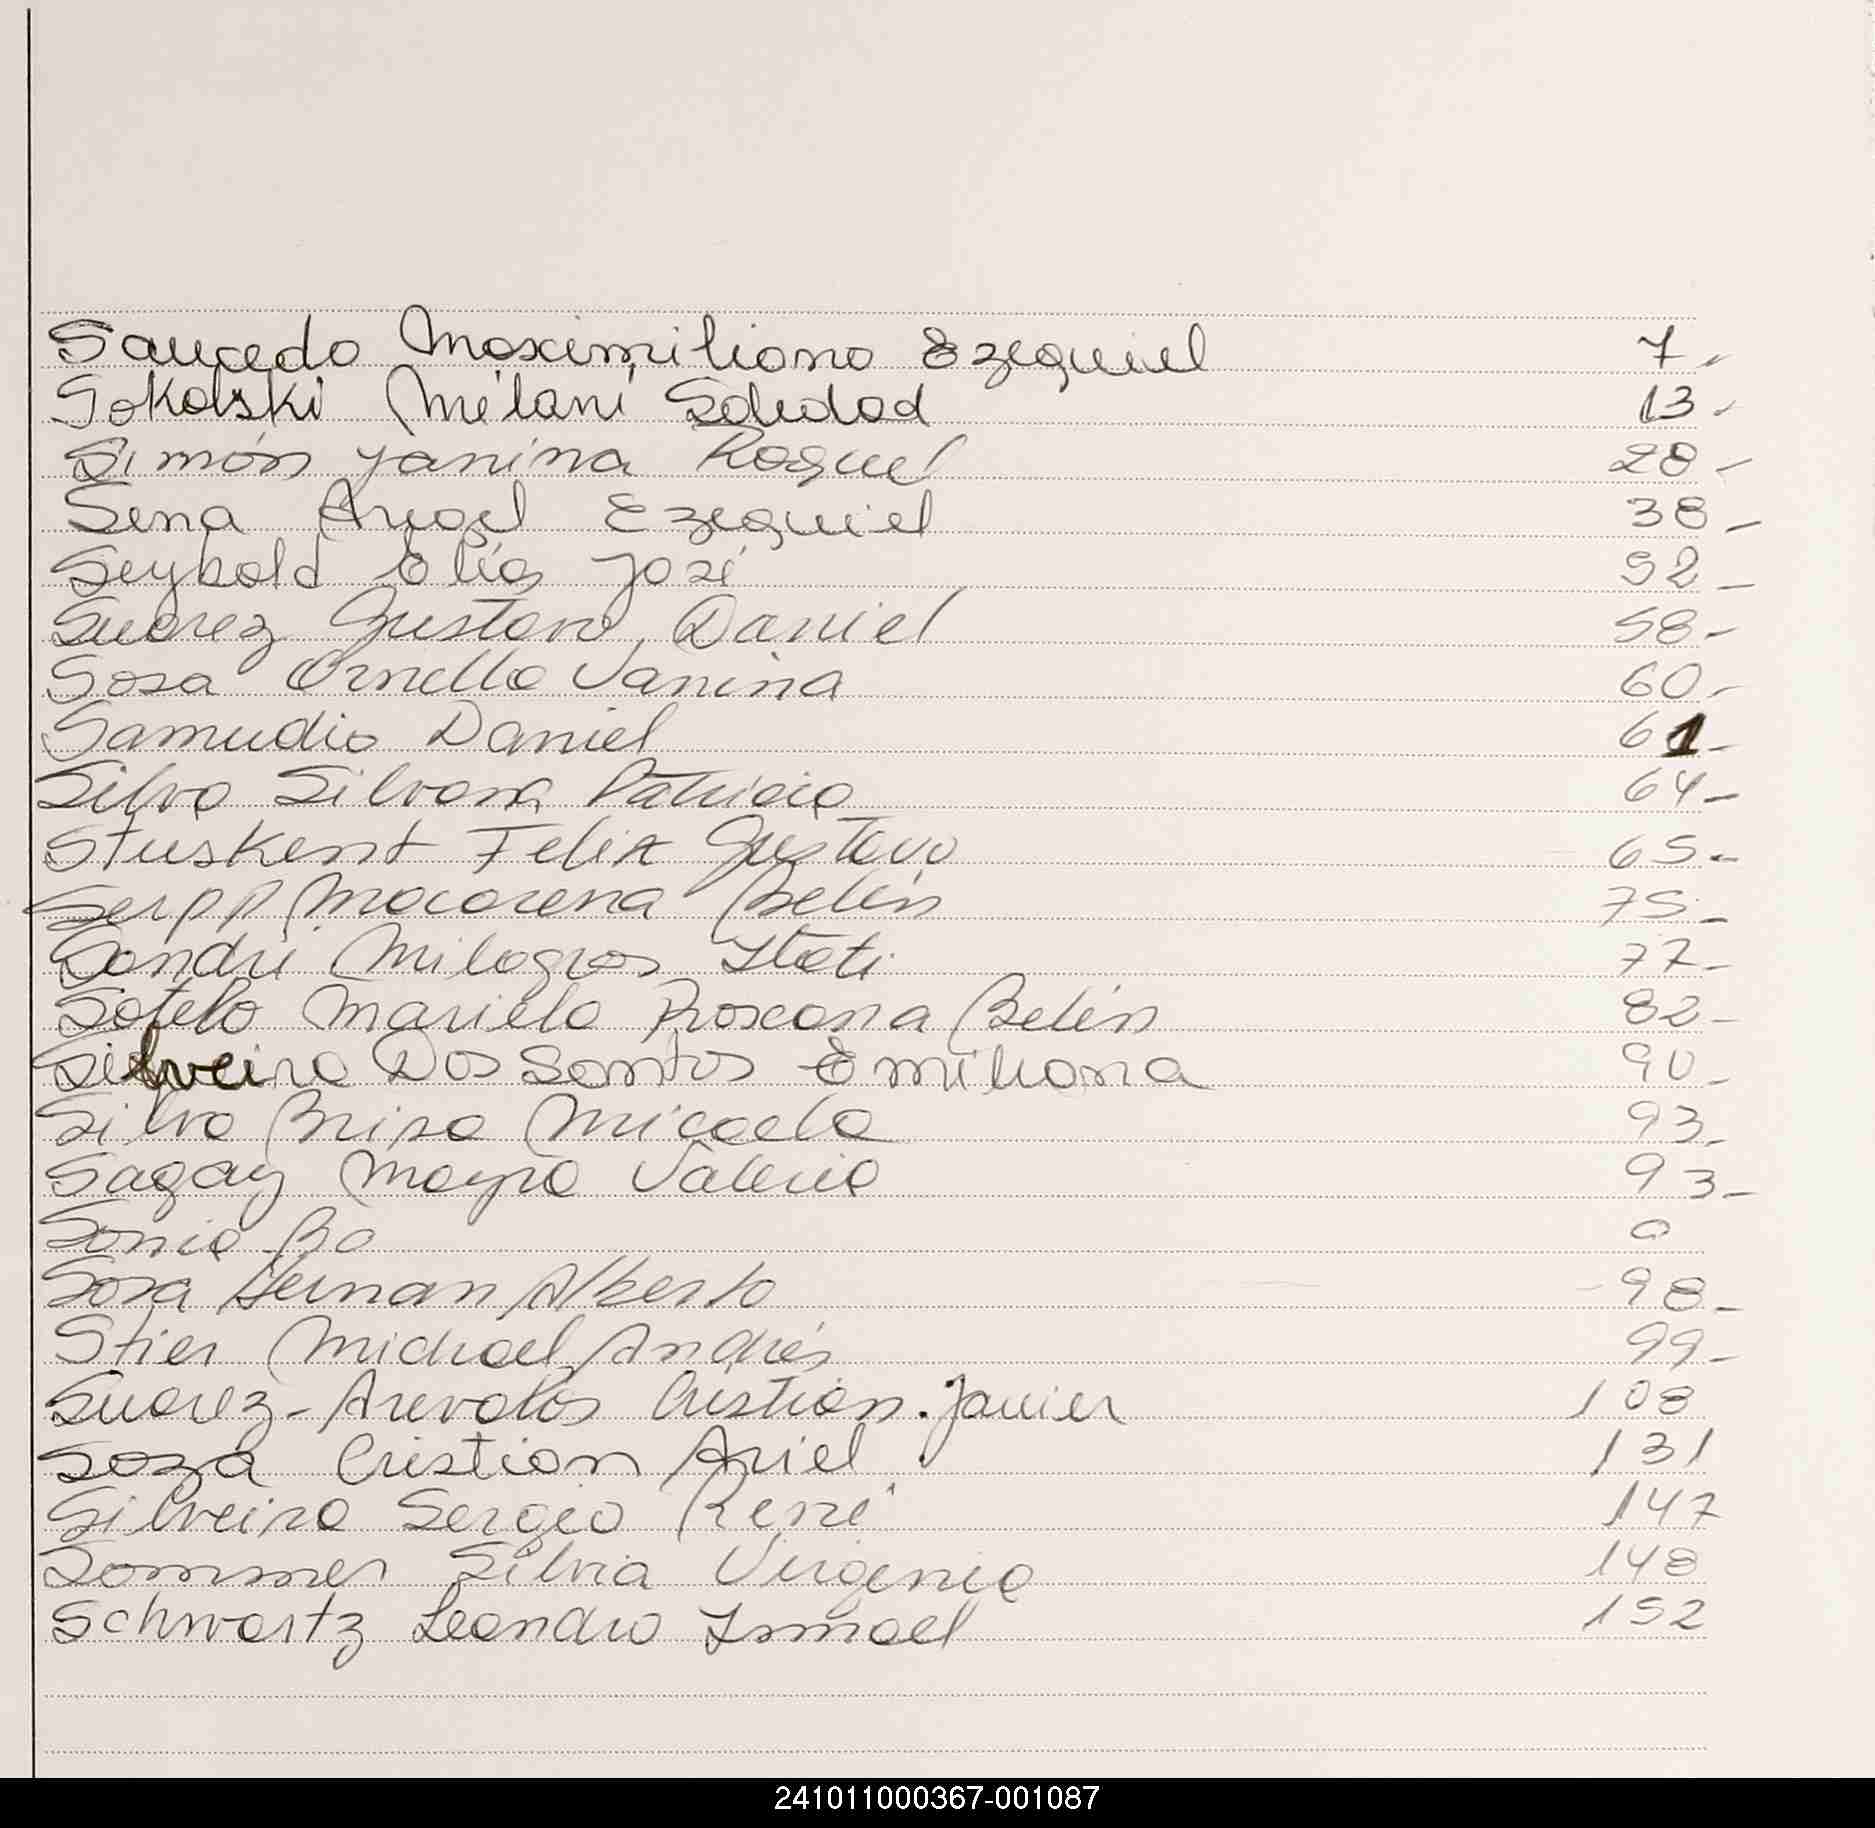 Saucedo Maximiliano Ezequiel 7-
Sokolski Milani Soledad 13-
Simón Yanina Raquel 28-
Sena Angel Ezequiel 38-
Seybold Elías José 52-
Suarez Gustavo Daniel 58-
Sosa Ornella Vanina 60-
Samudio Daniel 61-
Silva Silvana Patricia 64-
Stuskent Felix Gustavo 65-
Serpp Macarena Belén 75-
Sandri Milagros Itati 77-
Sotelo Mariela Roxana Belén 82-
Silveira Dos Santos Emiliana 90-
Silva Brisa Micaela 93-
Sagay Mayra Valeria 93-
Sonia Ba 0
Sosa Hernan Alberto 98-
Stier Michael Andrés 99-
Suarez-Arevalos Cristian Javier 108
Soza Cristian Ariel 131
Silveira Sergio René 147
Sommer Silvia Virginia 148
Schwartz Leandro Ismael 152
241011000367-001087